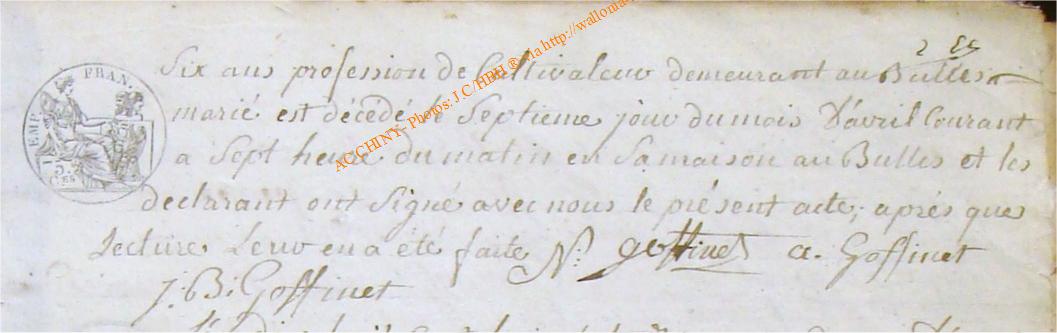 Six ans profession de Cultivateur demeurant au Bulles
marié est décédé le Septieme jour du mois D'avril Courant
a Sept heure du matin en Sa maison au Bulles et les
declarant ont Signé avec nous le présent acte, aprés que
Lecture Leur en a été faite N. goffinet a. Goffinet
J: B: Goffinet
EMP. FRAN.
ACCHINY- Photos: J.C/HBH ® via http://wallonia